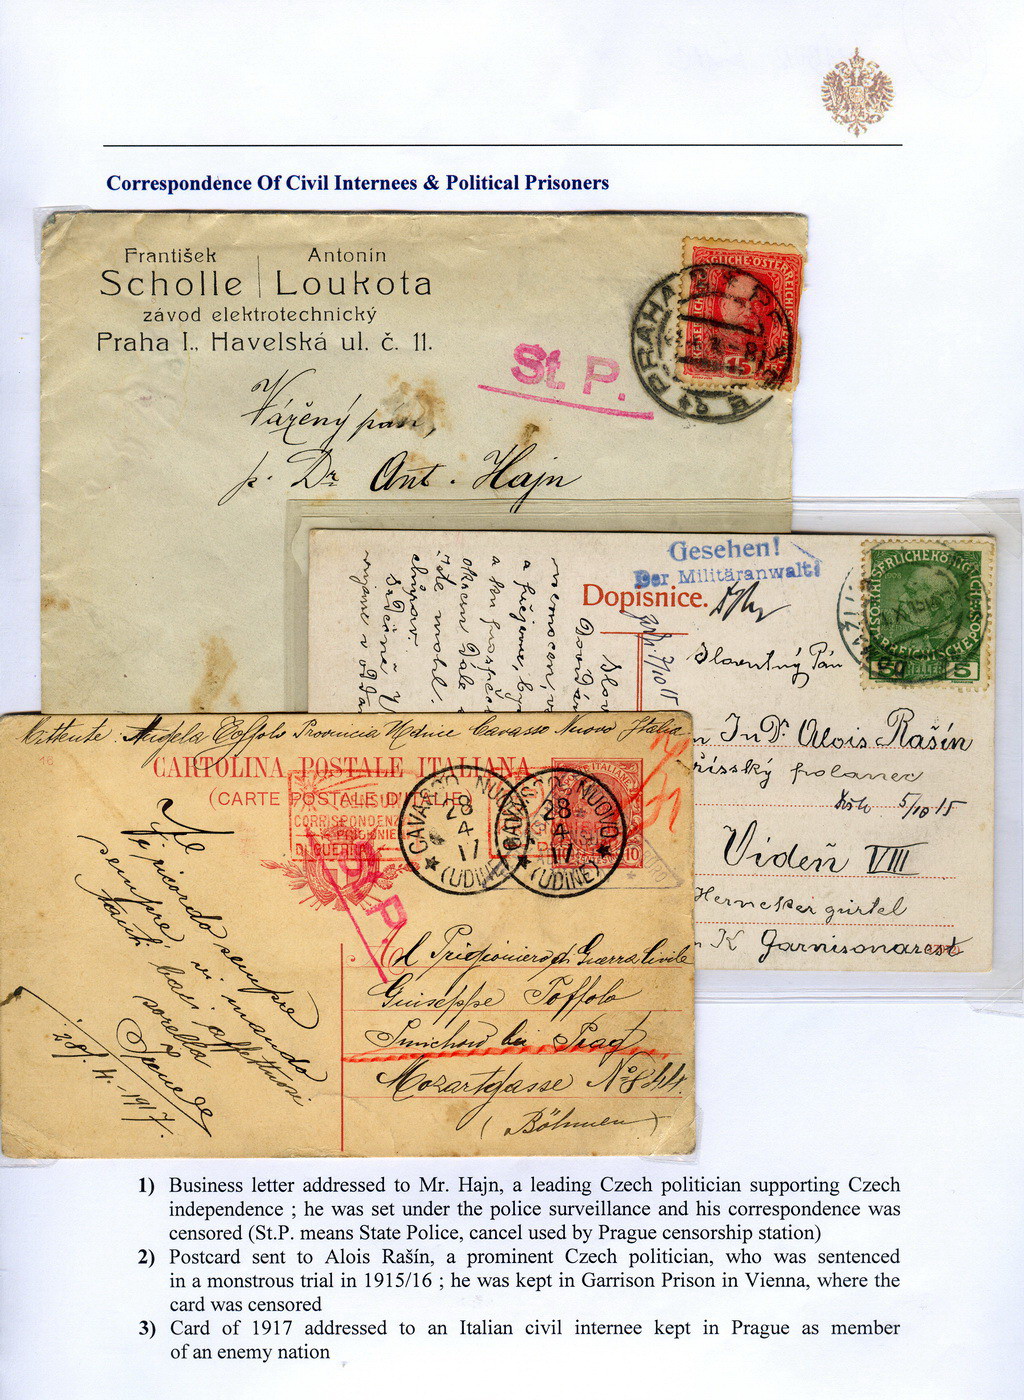 Correspondence Of Civil Internees & Political Prisoners
František Antonín
Scholle Loukota
závod elektrotechnický
Praha I., Havelská ul. č. 11.
St. P.
PRAHA
15
Vážený pán,
p. Dr. Ant. Hajn
Gesehen!
Der Militäranwalt:
Dopisnice.
5
Slovutný Pán
JnDr Alois Rašín
5/10 15
Vídeň VIII
Hernelser gürtel
K Garnisonarest
Mittente: Angela Toffolo Provincia Udine Cavasso Nuovo Italia
16
CARTOLINA POSTALE ITALIANA
(CARTE POSTALE D'ITALIE)
CORRISPONDENZ
PRIGIONIE
DI GUERRA
CAVASSO NUOVO
28
4
17
(UDINE)
CAVASSO NUOVO
28
4
17
(UDINE)
10
P.
Al Prigioniero di Guerra Civile
Guiseppe Toffolo
Smichow bei Prag
Mozartgasse No 844.
(Böhmen)
Vi ricordo sempre
sempre vi mando
tanti baci affettuosi
sorella
28/. 4. 1917.
1) Business letter addressed to Mr. Hajn, a leading Czech politician supporting Czech
independence ; he was set under the police surveillance and his correspondence was
censored (St.P. means State Police, cancel used by Prague censorship station)
2) Postcard sent to Alois Rašín, a prominent Czech politician, who was sentenced
in a monstrous trial in 1915/16 ; he was kept in Garrison Prison in Vienna, where the
card was censored
3) Card of 1917 addressed to an Italian civil internee kept in Prague as member
of an enemy nation